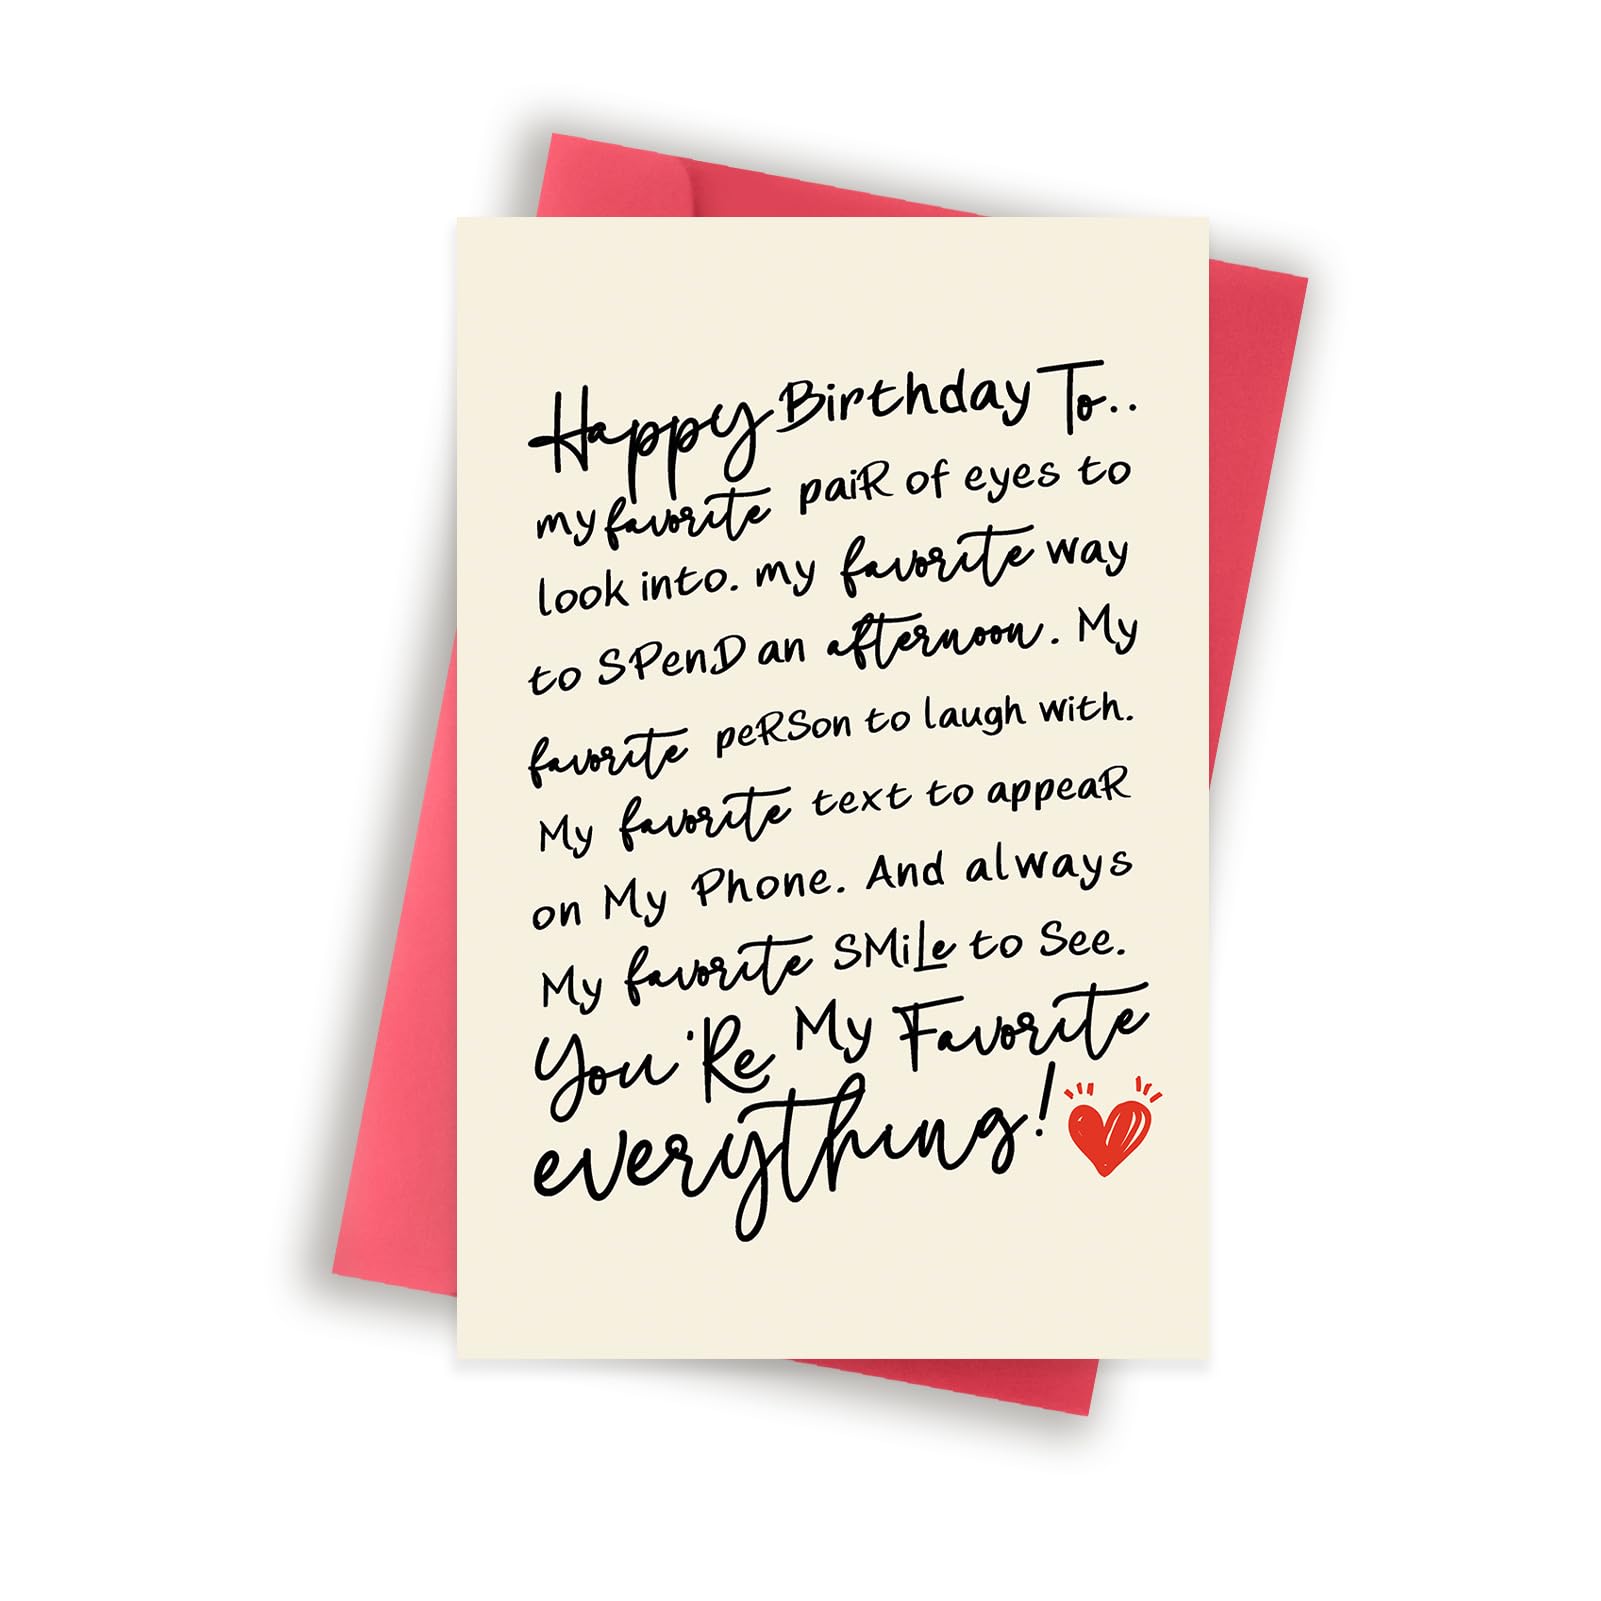 Happy Birthday To..
my favorite paiR of eyes to
look into. my favorite way
to SPenD an afternoon. My
favorite peRSon to laugh with.
My favorite text to appeaR
on My Phone. And always
My favorite SMiLe to See.
You'Re My Favorite
everything!